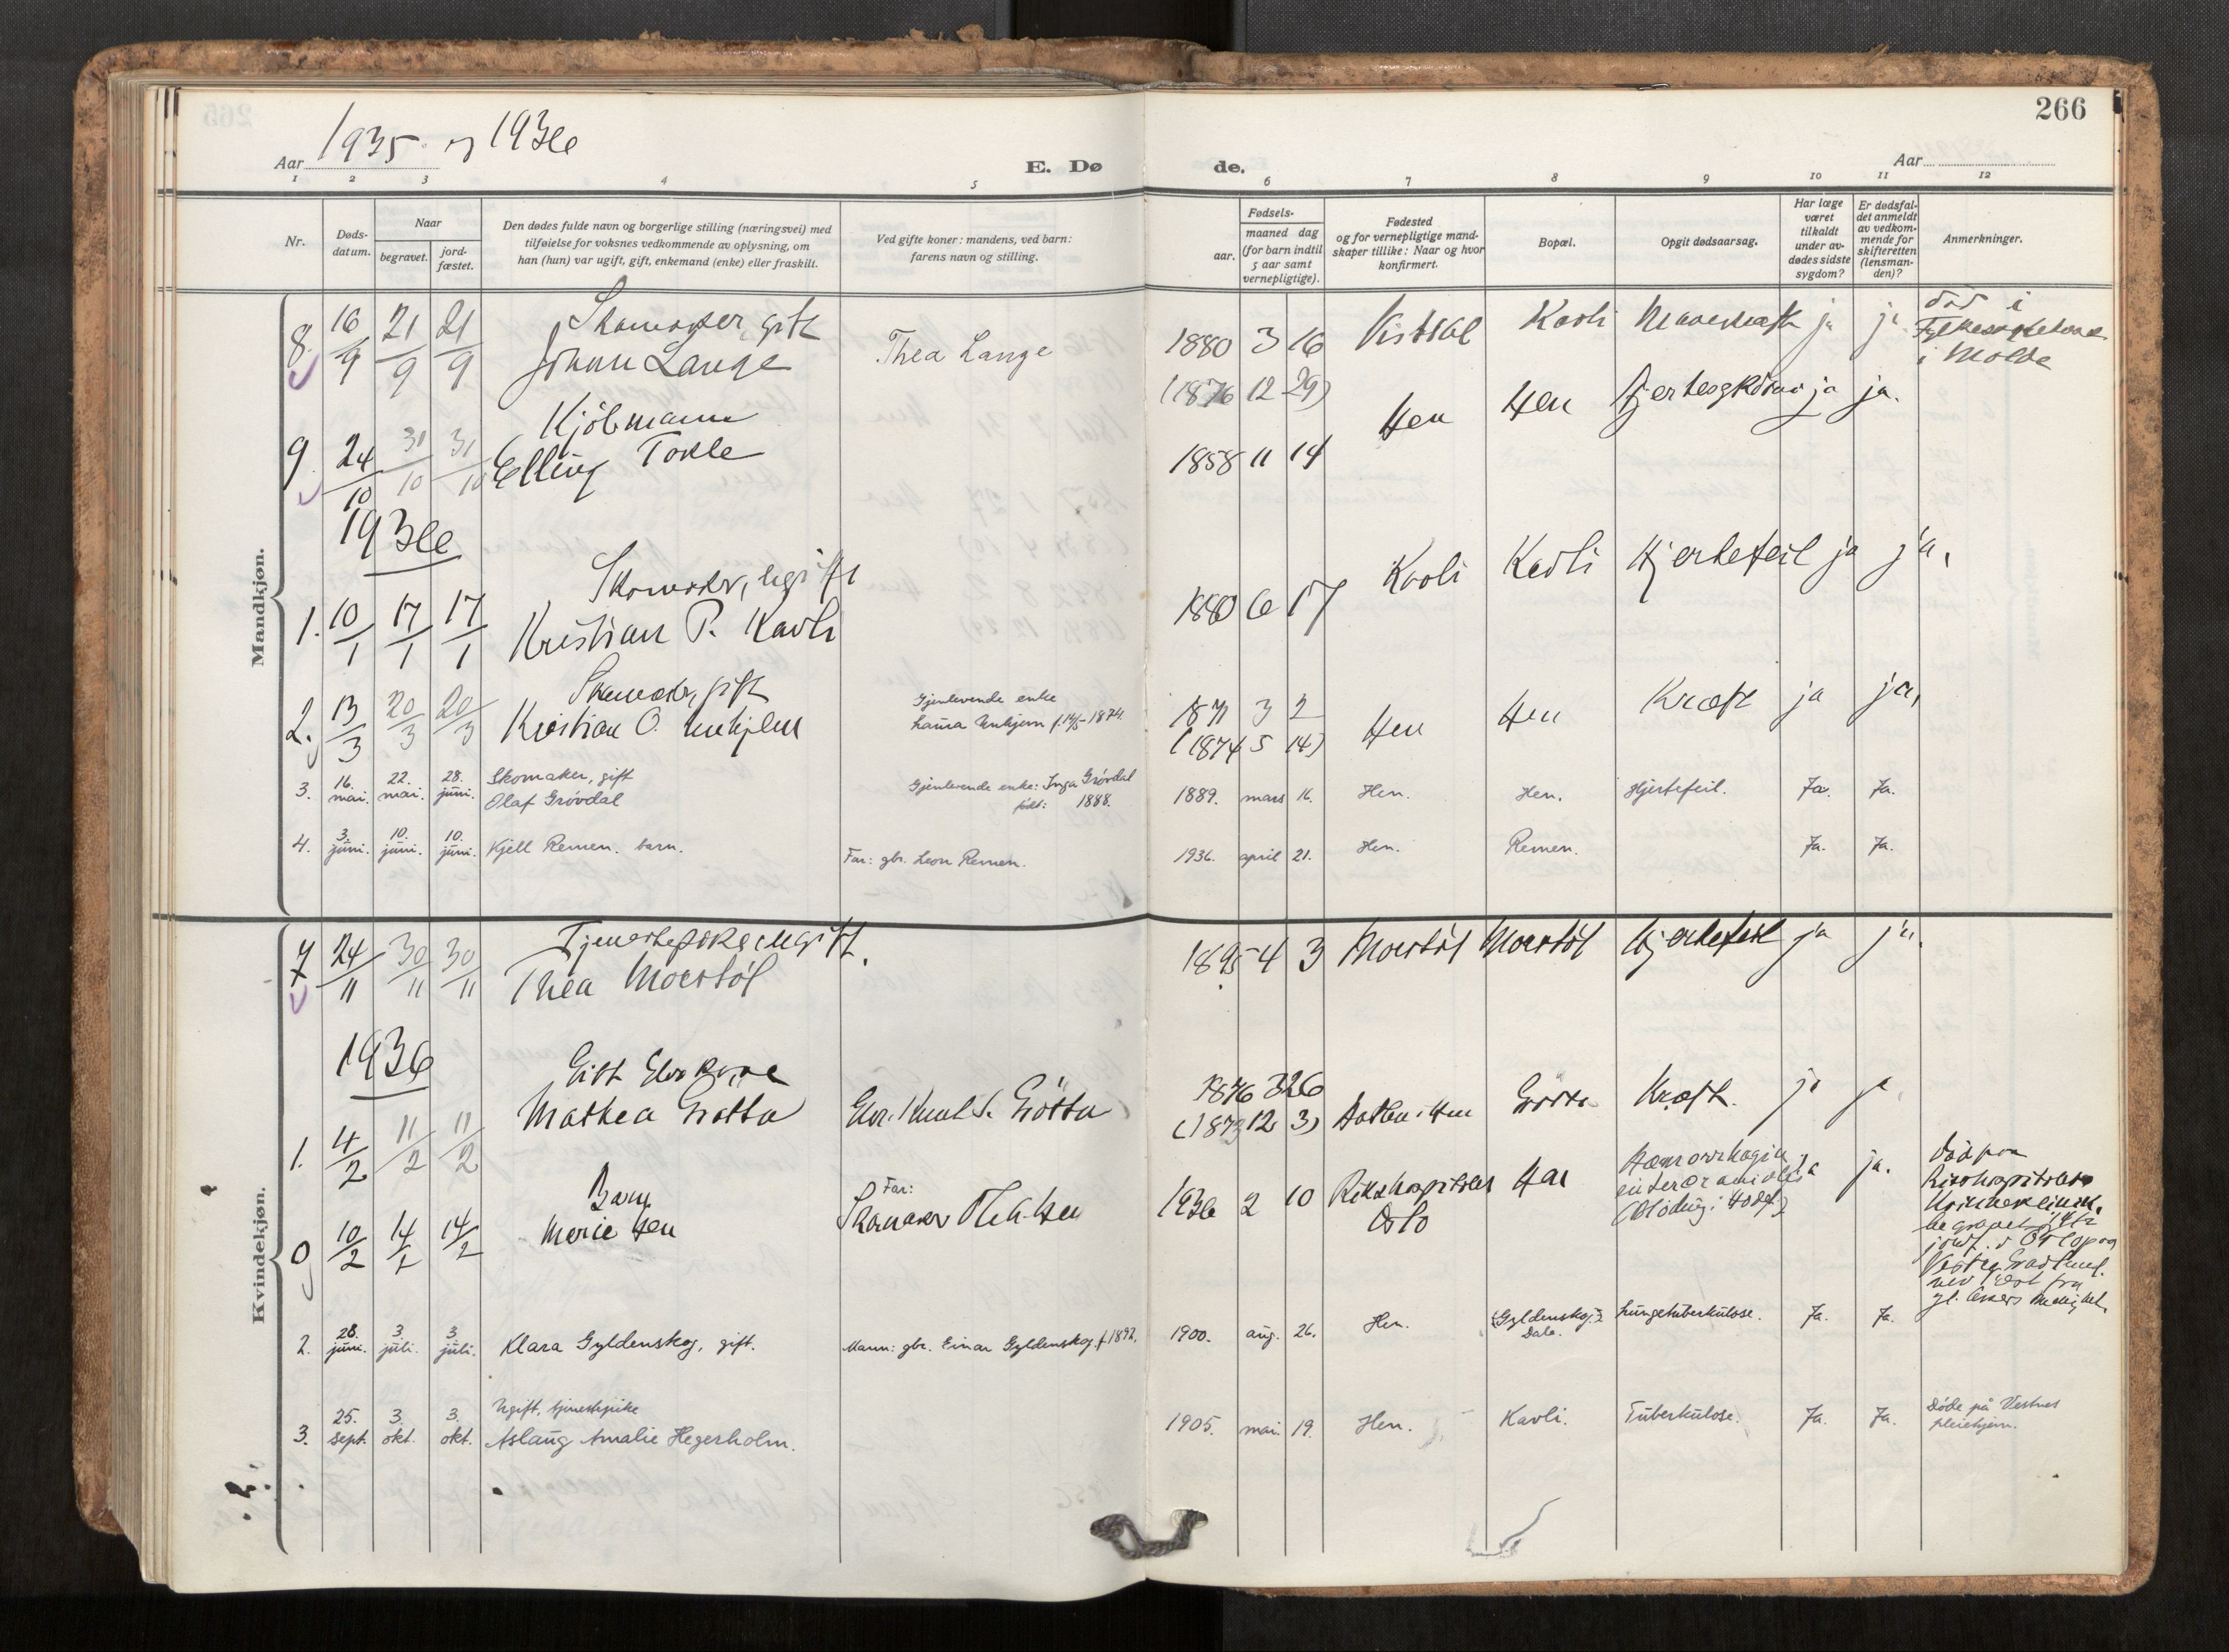 266
Aar 1935 og 1936
E. Dø de.
Aar
1 2 3 4 5 6 7 8 9 10 11 12
Nr.
Døds-
datum.
Naar
begravet.
jord-
fæstet.
Den dødes fulde navn og borgerlige stilling (næringsvei) med
tilføielse for voksnes vedkommende av oplysning, om
han (hun) var ugift, gift, enkemand (enke) eller fraskilt.
Ved gifte koner: mandens, ved barn:
farens navn og stilling.
Fødsels-
aar.
maaned dag
(for barn indtil
5 aar samt
vernepligtige).
Fødested
og for vernepligtige mand-
skaper tillike: Naar og hvor
konfirmert.
Bopæl.
Opgit dødsaarsag.
Har læge
været
tilkaldt
under av-
dødes sidste
sygdom?
Er dødsfal-
det anmeldt
av vedkom-
mende for
skifteretten
(lensman-
den)?
Anmerkninger.
Mandkjøn.
8. 16/9 21/9 21/9 Skomaker, gift
Johan Lange Thea Lange 1880 3 16 Kavli ja ja død i
(1876 12 29) i Molde
9. 24/10 31/10 31/10 Kjøbmann
Elling Tokle 1858 11 14 Hen Hen ja ja.
1936
1. 10/1 17/1 17/1 Skomaker, ugift
Kristian P. Kavli 1880 6 17 Kavli Kavli Hjertefeil ja ja,
2. 13/3 20/3 20/3 Skomaker, gift
Kristian O. Unhjem Gjenlevende enke
Launa Unhjem f. 14/5-1874. 1871 3 2 Hen Hen Kræft ja ja,
(1874 5 14)
3. 16. mai. 22. mai. 28. juni. Skomaker, gift
Olaf Grövdal Gjenlevende enke: Inga Grövdal
født: 1888. 1889. mars 16. Hen. Hen. Hjertefeil. Ja. Ja.
4. 3. juni. 10. juni. 10. juni. Kjell Remen. barn. Far: gbr. Leon Remen. 1936. april 21. Hen. Remen. Ja. Ja.
Kvindekjøn.
7 24/11 30/11 30/11 Tjenestepike, ugift.
Thea Morstöl 1895 4 3 Morstöl Morstöl Hjertefeil ja ja.
1936
1. 4/2 11/2 11/2 Gift
Mathea Grötta Knut S. Grötta 1876 3 26 Grötta Kræft. ja ja
(1873 12 3)
0 10/2 14/2 14/2 Barn
Marie Hen Far:
Skomaker Hen 1936 2 10 Rikshospitalet
Oslo Hen ja ja. Död paa
Rikshospitalets
2. 28. juni. 3. juli. 3. juli. Klara Gyldenskog, gift. Mann: gbr. Einar Gyldenskog f. 1892. 1900. aug. 26. Hen. (Gyldenskog)
Dale. Lungetuberkulose. Ja. Ja.
3. 25. sept. 3. okt. 3. okt. Ugift, tjenestepike
Aslaug Amalie Hegerholm. 1905. mai. 19. Hen. Kavli. Tuberkulose. Ja. Ja. Døde på Vestnes
pleiehjem.